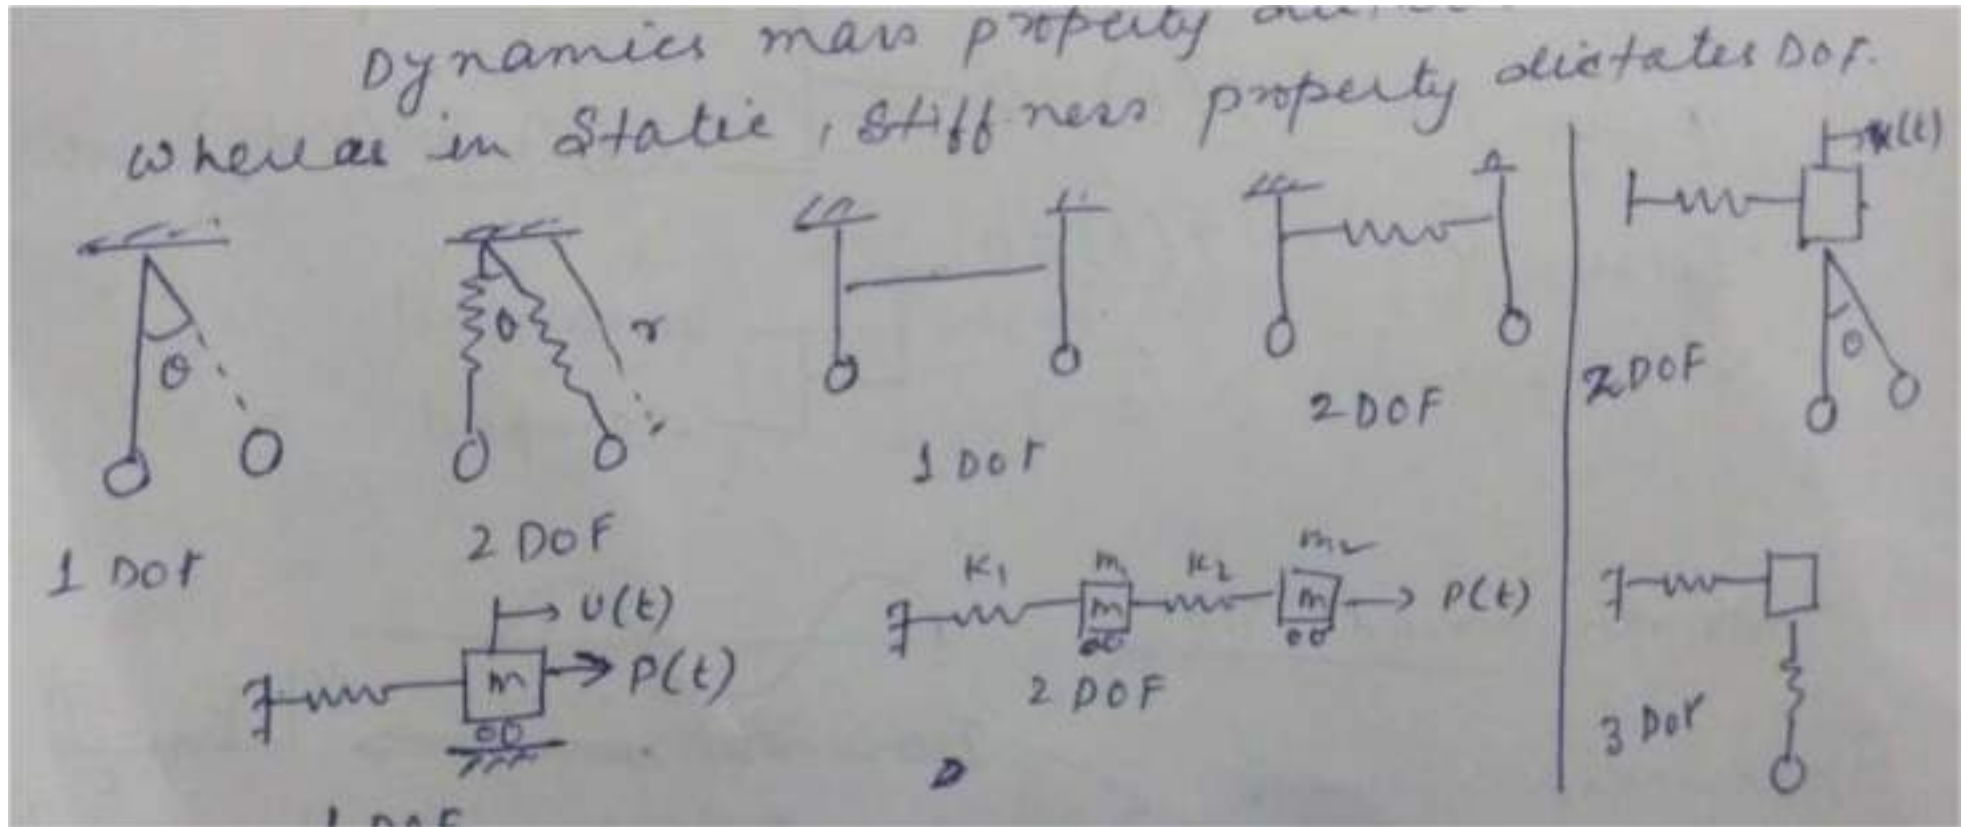 Dynamics mass property
whereas in Static, stiffness property dictates DOF.
θ
1 DOF
θ r
2 DOF
1 DOF
2 DOF
x(t)
θ
2 DOF
U(t)
m P(t)
1 DOF
K1 m1 K2 m2
m m P(t)
2 DOF
3 DOF